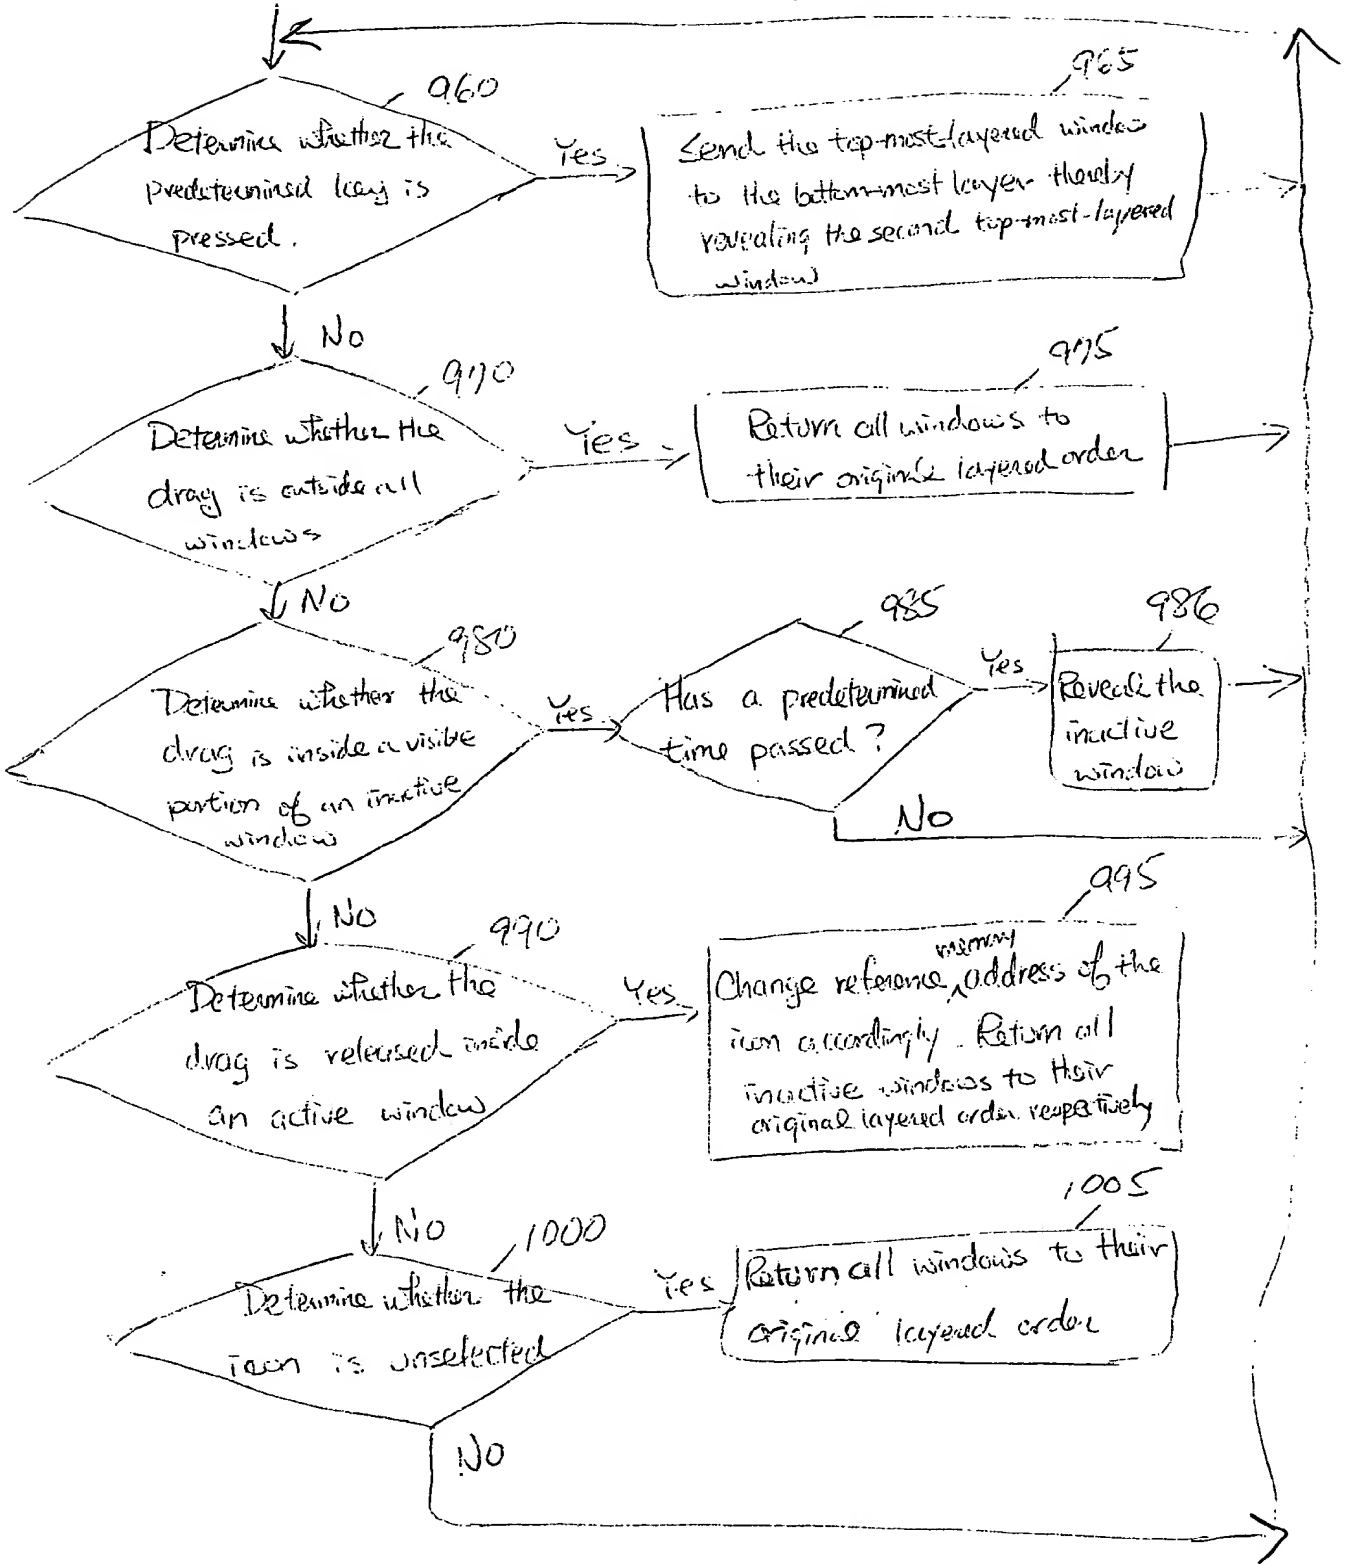 960
Determine whether the
predetermined key is
pressed.
Yes
965
Send the top-most-layered window
to the bottom-most layer thereby
revealing the second top-most-layered
window
No
970
Determine whether the
drag is outside all
windows
Yes
975
Return all windows to
their original layered order
No
980
Determine whether the
drag is inside a visible
portion of an inactive
window
Yes
985
Has a predetermined
time passed?
Yes
986
Reveal the
inactive
window
No
No
990
Determine whether the
drag is released inside
an active window
Yes
995
memory
Change reference ^ address of the
icon accordingly. Return all
inactive windows to their
original layered order respectively
No
1000
Determine whether the
icon is unselected
Yes
1005
Return all windows to their
original layered order
No